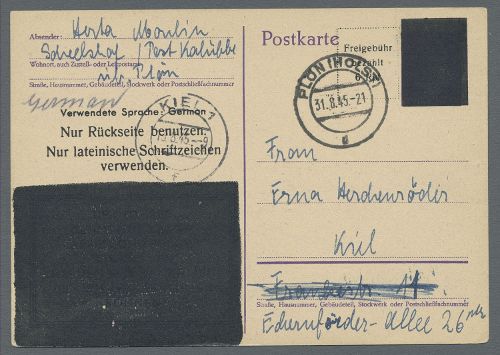 Absender: Herta Moulin
Scheelshof / Post Kalübbe
Wohnort, auch Zustell- oder Leitpostamt
üb. Plön
Straße, Hausnummer, Gebäudeteil, Stockwerk oder Postschließfachnummer
German
Verwendete Sprache: German
Nur Rückseite benutzen.
Nur lateinische Schriftzeichen
verwenden.
KIEL 1
Postkarte
Freigebühr
bezahlt
PLÖN (HOLST)
31.8.45.-21
d
Frau
Erna Herdenröder
Kiel
11
Straße, Hausnummer, Gebäudeteil, Stockwerk oder Postschließfachnummer
Eckernförder-Allee 26